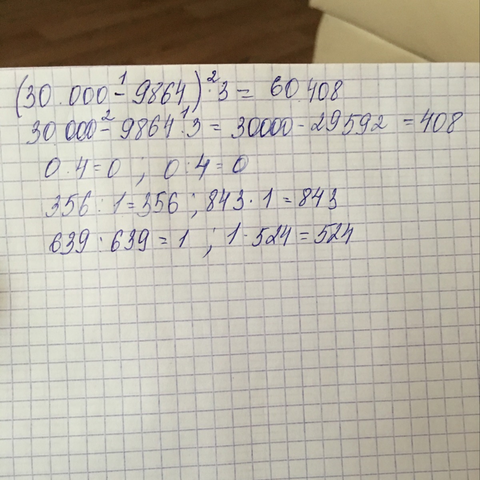 (30.000 -¹ 9864) ·² 3 = 60.408
30 000 -² 9864 ·¹ 3 = 30000 - 29592 = 408
0 · 4 = 0 ; 0 : 4 = 0
356 : 1 = 356 ; 843 · 1 = 843
639 : 639 = 1 ; 1 · 524 = 524